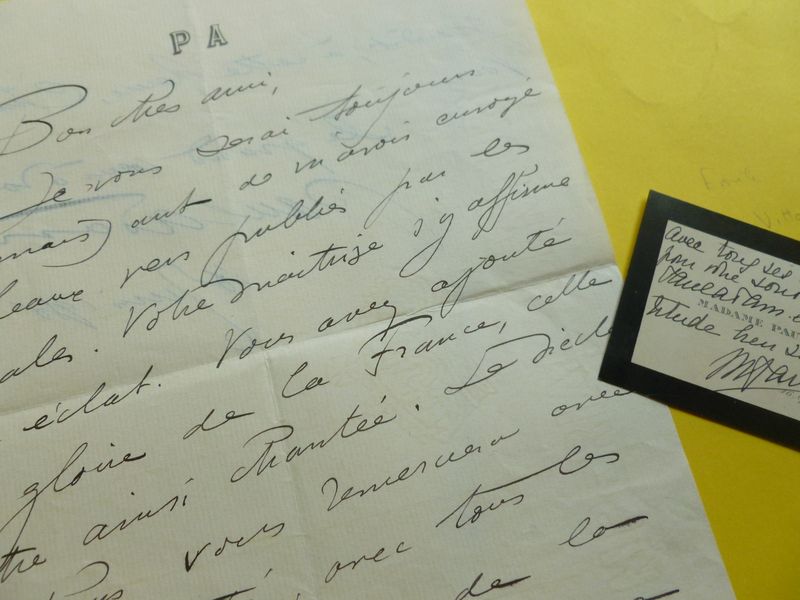 P A
Bon cher ami,
Je vous serai toujours
mais) aut de m'avoir envoyé
beaux vers publiés par les
ales. Votre maîtrise s'y affirme
éclat. Vous avez ajouté
gloire de la France, celle
tre ainsi chantée. Le siècle
vous remerciera avec
té, avec tous les
de la
avec tous ses
pour une
MADAME PAU
titude